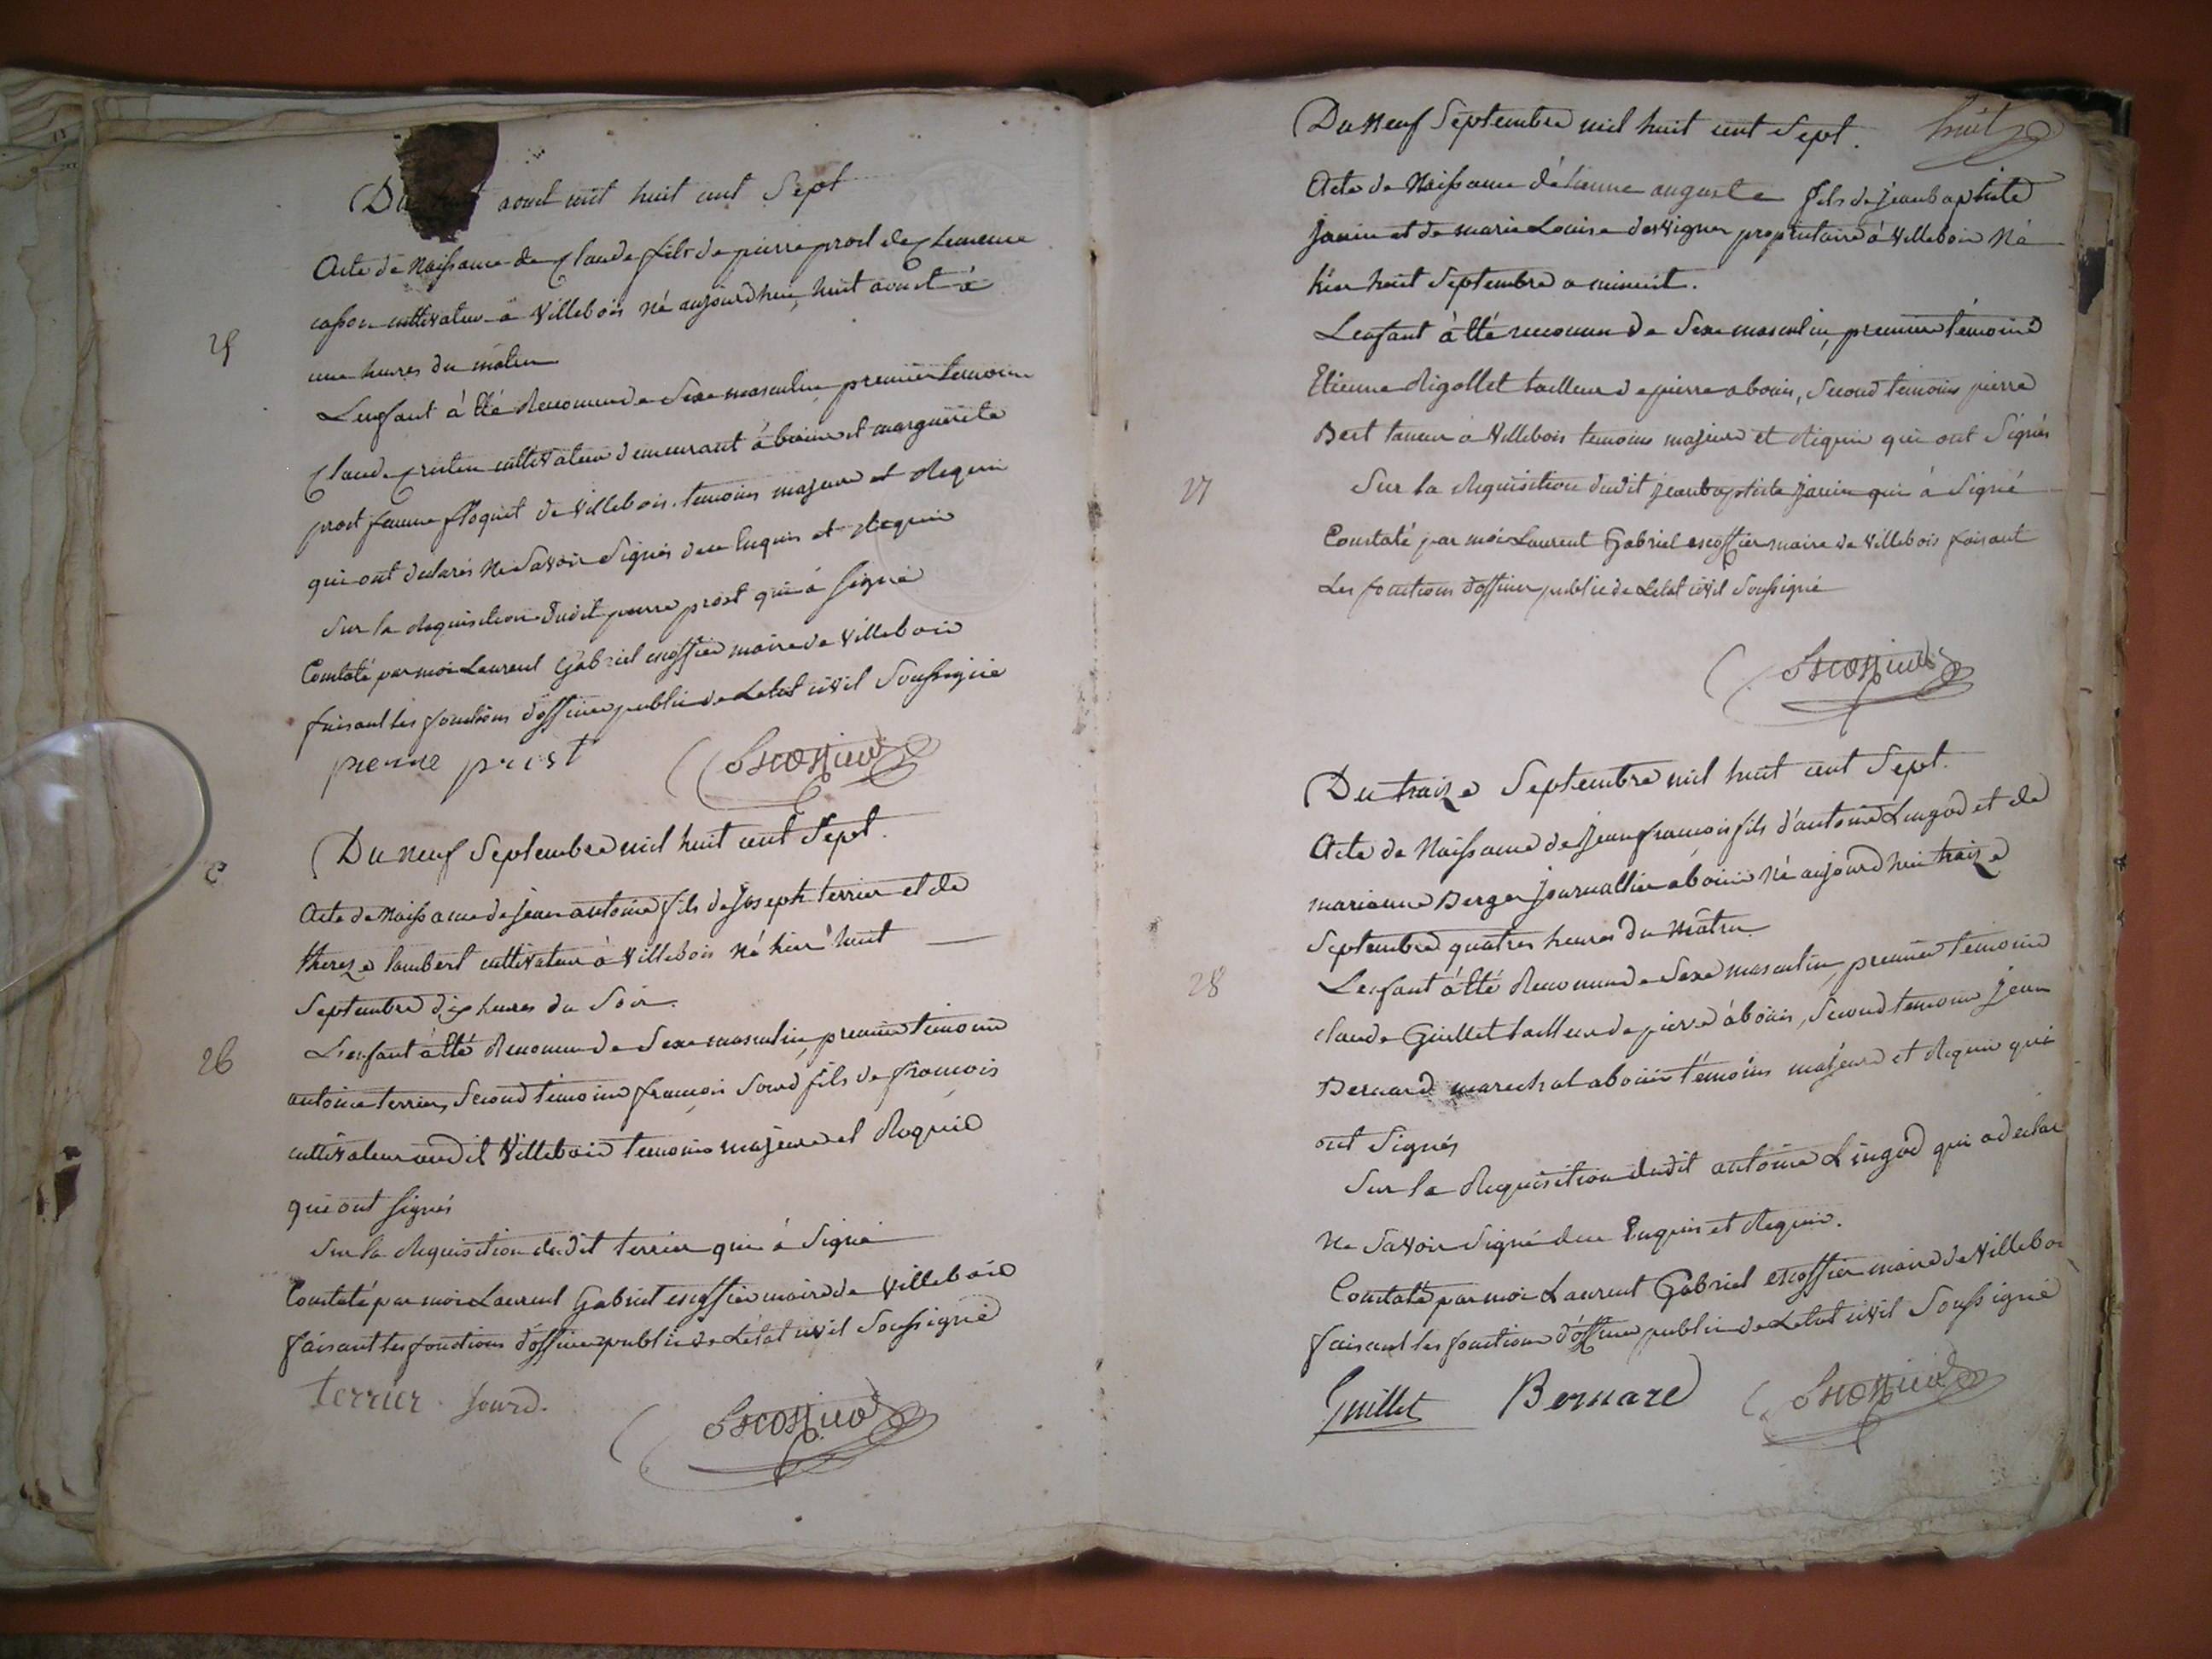 Du huit aout mil huit cent Sept
Acte de Naissance de Claude fils de pierre prost de Clemence
casson cultivateur a Villebois né aujourdhui, huit aout à
25
une heures du matin
Lenfant à Eté Reconnu de Sexe masculin, premier temoin
Claude cultivateur demeurant à bouis et marguerite
prost femme floquet de Villebois. temoins majeurs et Requis
qui ont declarés Ne Savoir Signés deux Enquis et Requis
Sur la Requisition dudit pierre prost qui à Signé
Constaté par moi Laurent Gabriel escoffier maire de Villebois
faisant les fonctions d'officier public de Letat civil Soussigné
pierre prost Escoffier
Du Neuf Septembre mil huit cent Sept.
Acte de Naissance de jean antoine fils de Joseph terrier et de
thereze lambert cultivateur à Villebois Né hier huit
Septembre dix heures du Soir.
26
Lenfant à Eté Reconnu de Sexe masculin, premier temoin
antoine terrier, Second temoin françois Sourd fils de françois
cultivateur audit Villebois temoins majeurs et Requis
qui ont Signés
Sur la Requisition dudit terrier qui à Signé
Constaté par moi Laurent Gabriel escoffier maire de Villebois
faisant les fonctions d'officier public de Létat civil Soussigné
terrier. Sourd. Escoffier
huit
Du Neuf Septembre mil huit cent Sept.
Acte de Naissance d'étienne auguste fils de jean baptiste
janin et de marie Louise desvignes propriétaire à Villebois Né
hier huit Septembre a minuit.
Lenfant à Eté reconnu de Sexe masculin, premier temoin
Etienne Rigollet tailleur de pierre a bouis, Second temoins pierre
Bert tanneur a Villebois temoins majeurs et Requis qui ont Signés
27
Sur la Requisition dudit jean baptiste janin qui à Signé
Constaté par moi Laurent Gabriel escoffier maire de Villebois faisant
Les fonctions d'officier public de Letat civil Soussigné
Escoffier
Du traize Septembre mil huit cent Sept.
Acte de Naissance de Jean françois fils d'antoine Lingod et de
marianne Berger journallier a bouis Né aujourdhui traize
Septembre quatres heures du Matin
28
Lenfant à Eté Reconnu de Sexe masculin, premier temoin
claude Guillet tailleur de pierre à bouis, Second temoin jean
Bernard marechal a bouis témoins majeurs et Requis qui
ont Signés
Sur la Requisition dudit antoine Lingod qui a declar
Ne Savoir Signé deux Enquis et Requis.
Constaté par moi Laurent Gabriel escoffier maire de Villeboi
faisant les fonctions d'officier public de Letat civil Soussigné
Guillet Bernard Escoffier